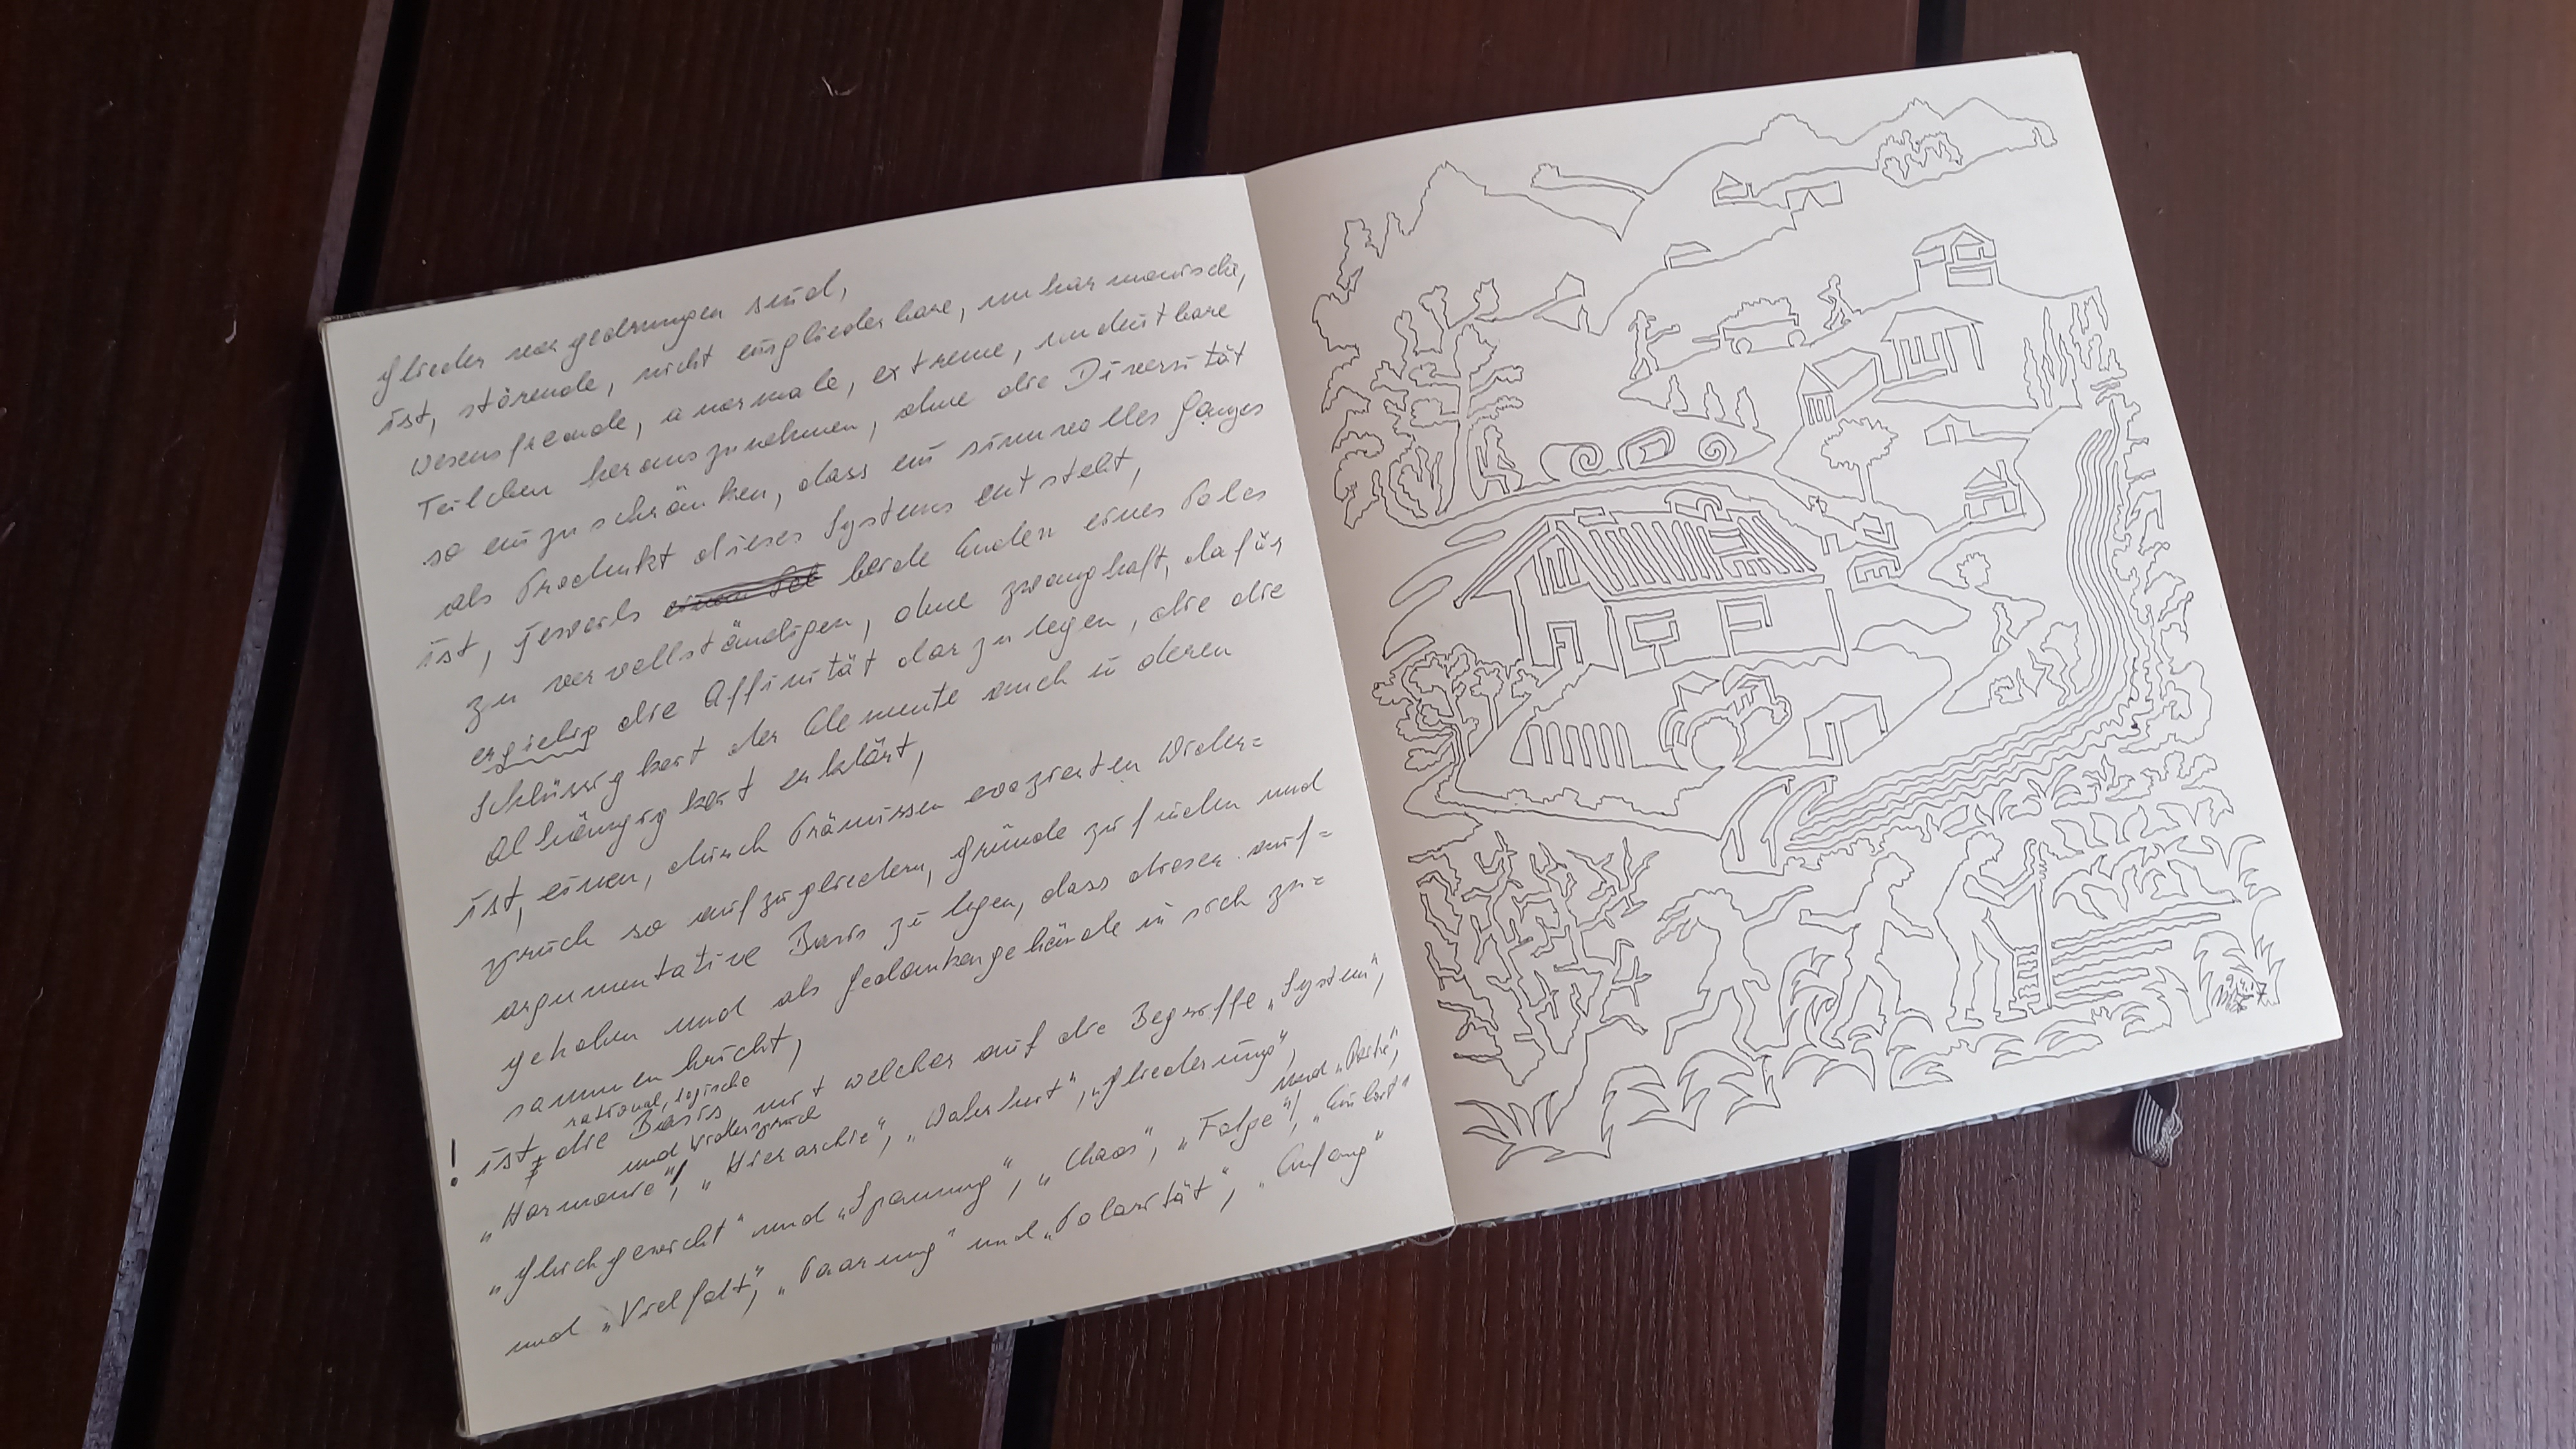 Glieder vorgedrungen sind,
ist, störende, nicht eingliederbare, unharmonische,
wesensfremde, anormale, extreme, undeutbare
Teilchen herauszunehmen, ohne die Diversität
so einzuschränken, dass ein sinnvolles Ganzes
als Produkt dieses Systems entsteht,
ist, jeweils beide Enden eines Poles
zu vervollständigen, ohne zwanghaft, dafür
ergiebig die Affinität darzulegen, die die
Schlüssigkeit der Elemente auch in deren
Abhängigkeit erklärt,
ist, einen, durch Prämissen evozierten Wider=
spruch so aufzugliedern, Gründe zu finden und
argumentative Basis zu legen, dass dieser auf=
gehoben und als Gedankengebäude in sich zu=
sammenbricht,
rational, logische
! ist die Basis, mit welcher auf die Begriffe „System",
und Widerspruch
„Harmonie", „Hierarchie", „Wahrheit", „Gliederung",
und
„Gleichgewicht" und „Spannung", „Chaos", „Folge", „Einheit"
und „Vielfalt", „Paarung" und „Polarität", „Anfang"